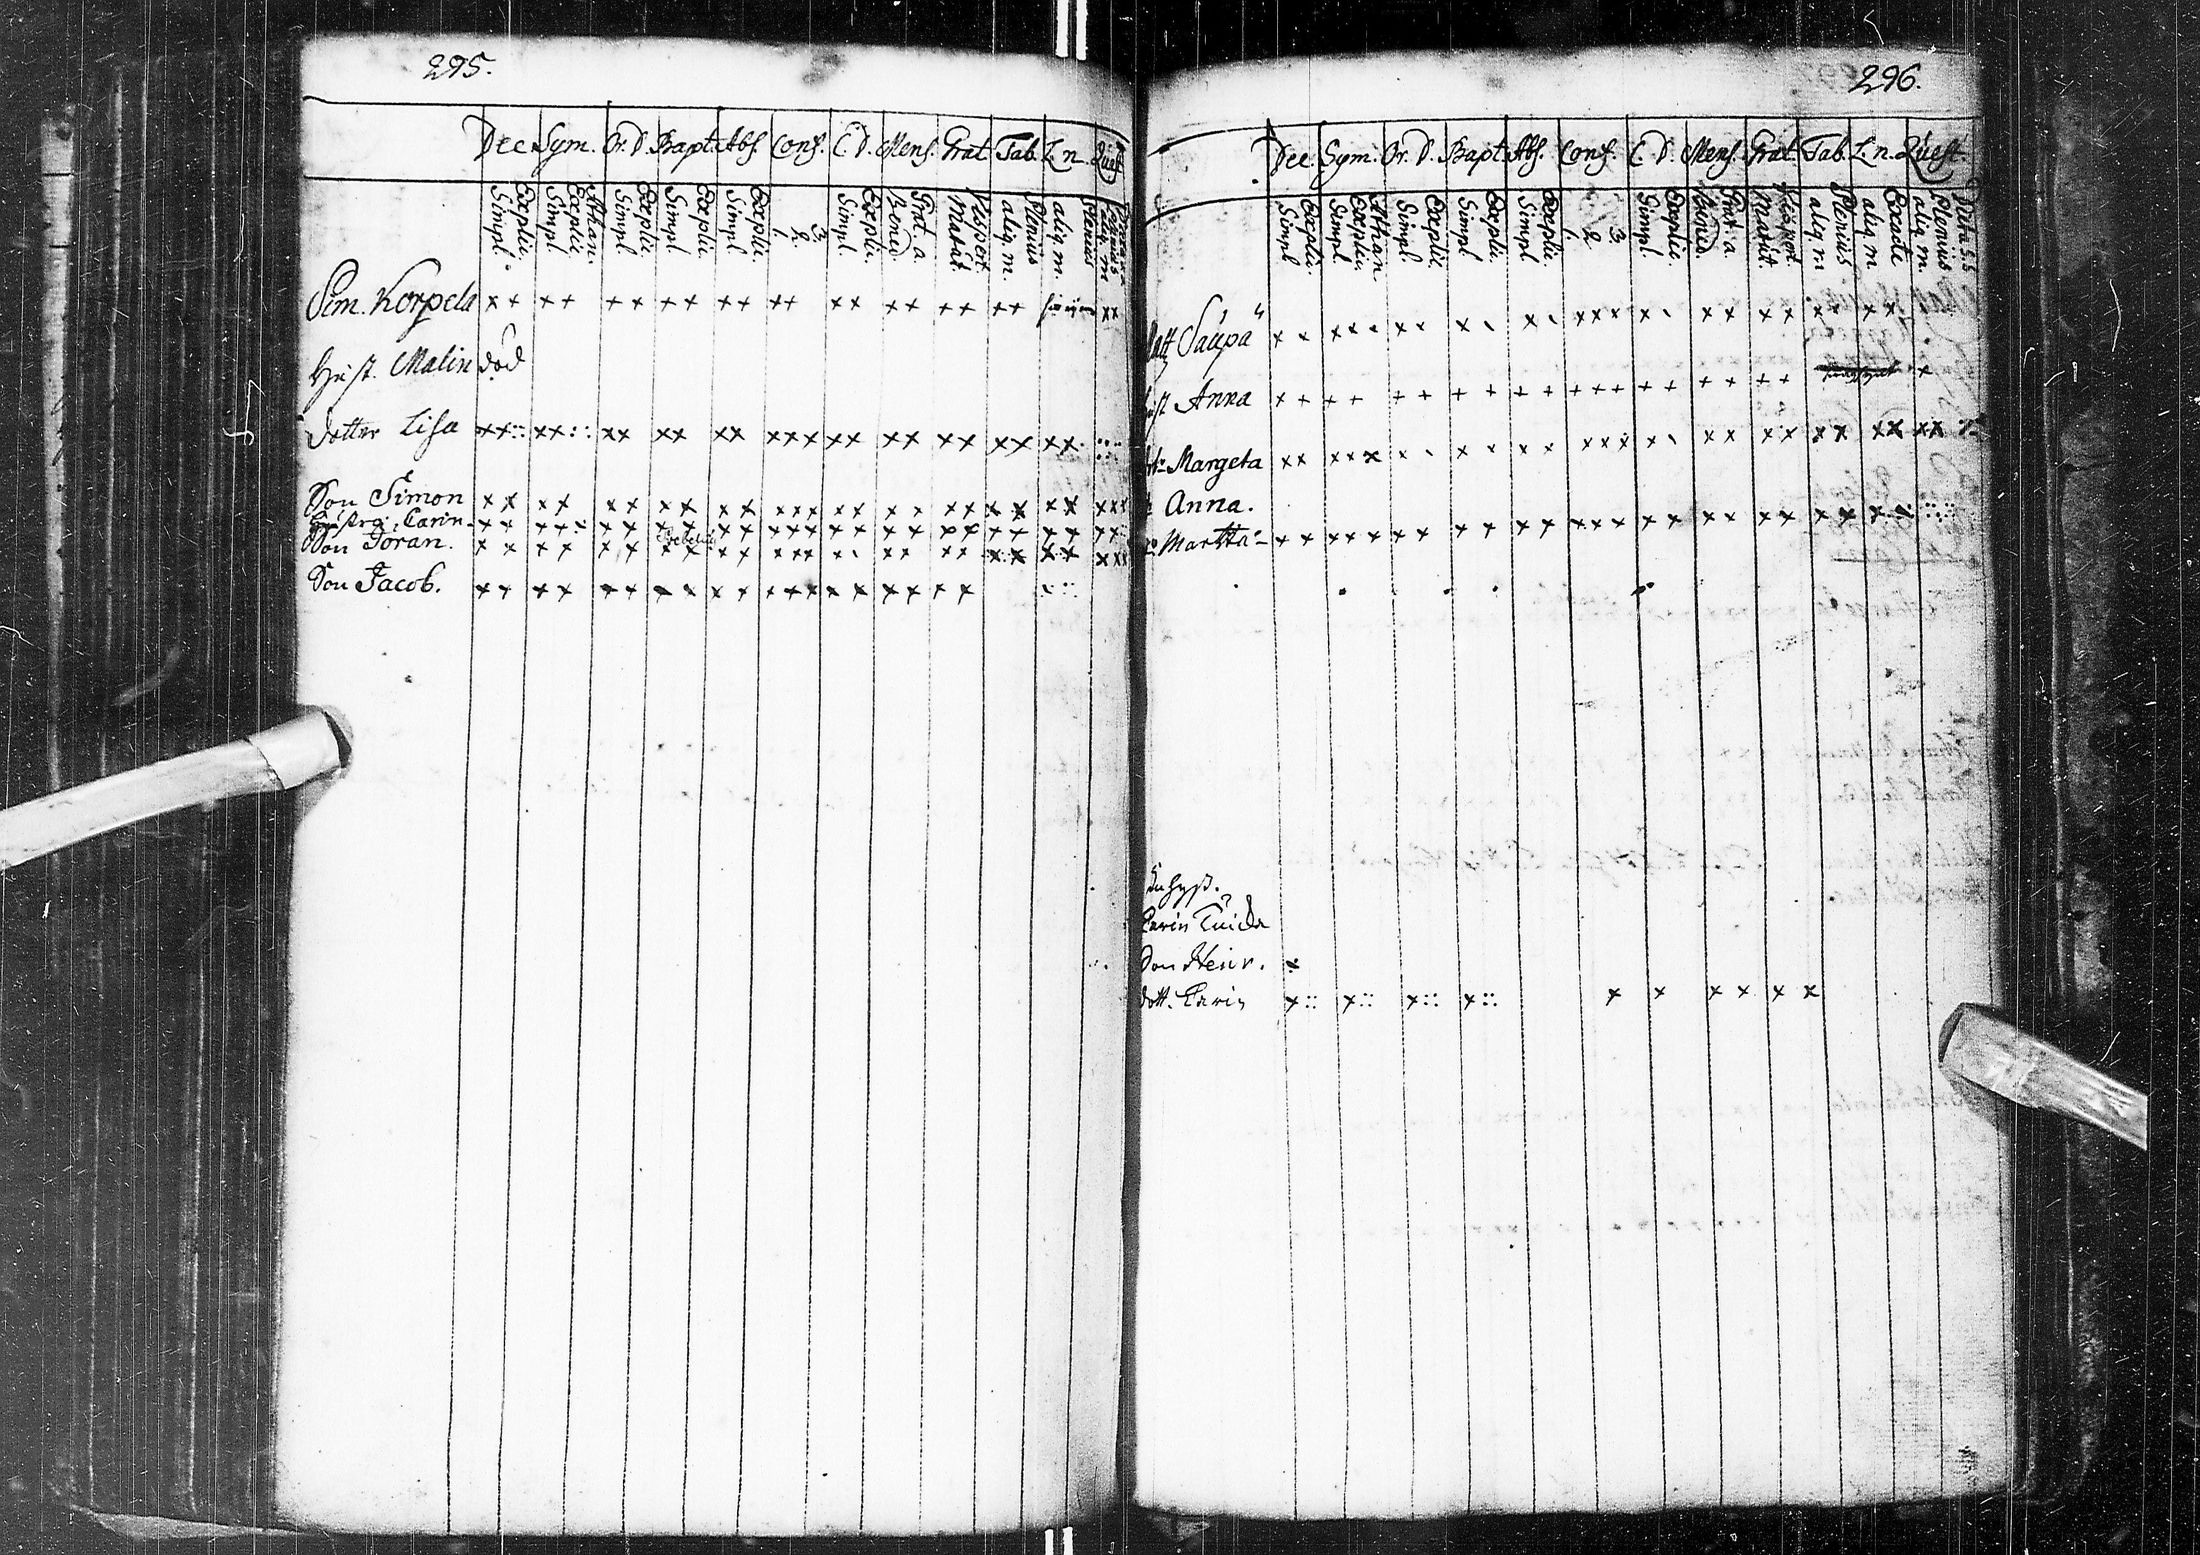 295.
Dec. Sym. Or. D. Bapt. Abs. Conf. C. D. Mens. Grat. Tab. L. n. Quest.
Simpl. Explic. Simpl. Explic. Athan. Simpl. Explic. Simpl. Explic. Simpl. Explic. 1. 2. 3. Simpl. Explic. Bened. Grat. a. Matut. Vespert. aliq. m. Plenius aliq. m. Plenius
Sim. Korpela x + + + + + + + + + + + + + + + + + + + x x
Hust. Malin död
dotter Lisa x x :: x x :: x x x x x x x x x x x x x x x x x x x x x
Son Simon x x x x x x x x x x x x x x x x x x x x x x x x x x x
Hustro. Carin
Son Joran.
Son Jacob.
296.
Dec. Sym. Or. D. Bapt. Abs. Conf. C. D. Mens. Grat. Tab. L. n. Quest.
Simpl. Explic. Simpl. Explic. Athan. Simpl. Explic. Simpl. Explic. Simpl. Explic. 1. 2. 3. Simpl. Explic. Grat. a. Matut. Vespert. aliq. m Plenius aliq. m Exacte aliq. m. Plenius Dicta S.S
Matt Saupa
Hust Anna + + + + + + + + + + + + + + + + + + + x
Margeta
Anna.
Martta
Inhys.
Carin
Son Henr. x
dott. Carin x :: x :: x :: x :: x x x x x x